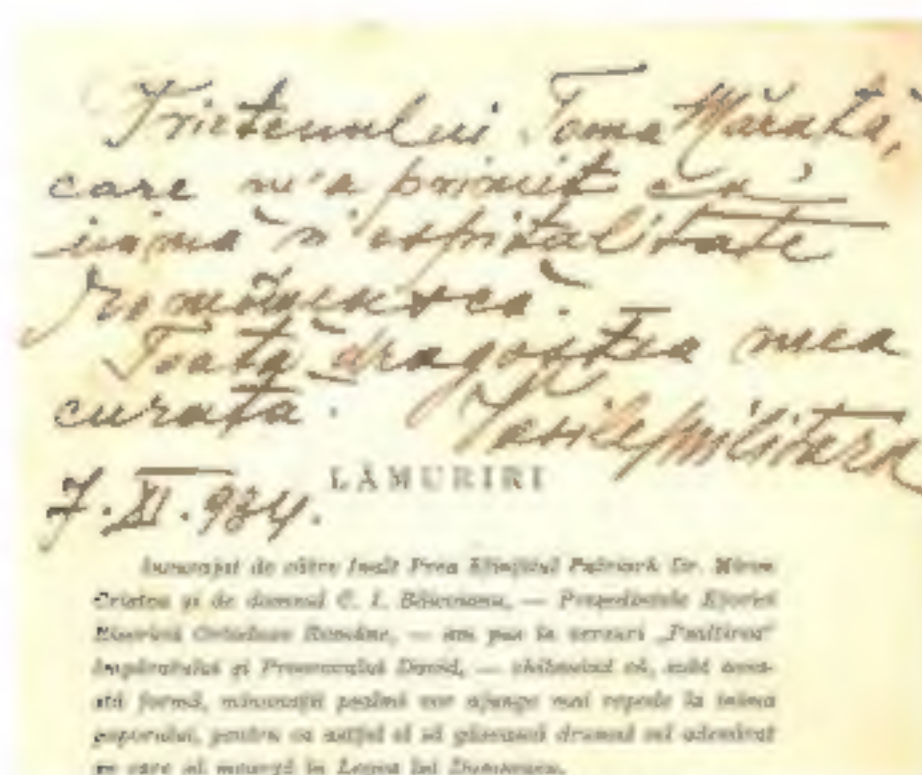 Prietenului Toma Mărată,
care m'a primit cu
inimă și ospitalitate
românească.
Toată dragostea mea
curată. Vasile Militaru
7.XI.934.
LĂMURIRI
Incurajat de către Inalt Prea Sfinţitul Patriarh Dr. Miron
Cristea şi de domnul C. I. Băicoianu, — Preşedintele Eforiei
Bisericii Ortodoxe Române, — am pus în versuri „Psaltirea"
Impăratului şi Proorocului David, — chibzuind că, sub acea-
stă formă, minunaţii psalmi vor ajunge mai repede la inima
poporului, pentru ca astfel el să găsească drumul cel adevărat
pe care să meargă în Legea lui Dumnezeu.